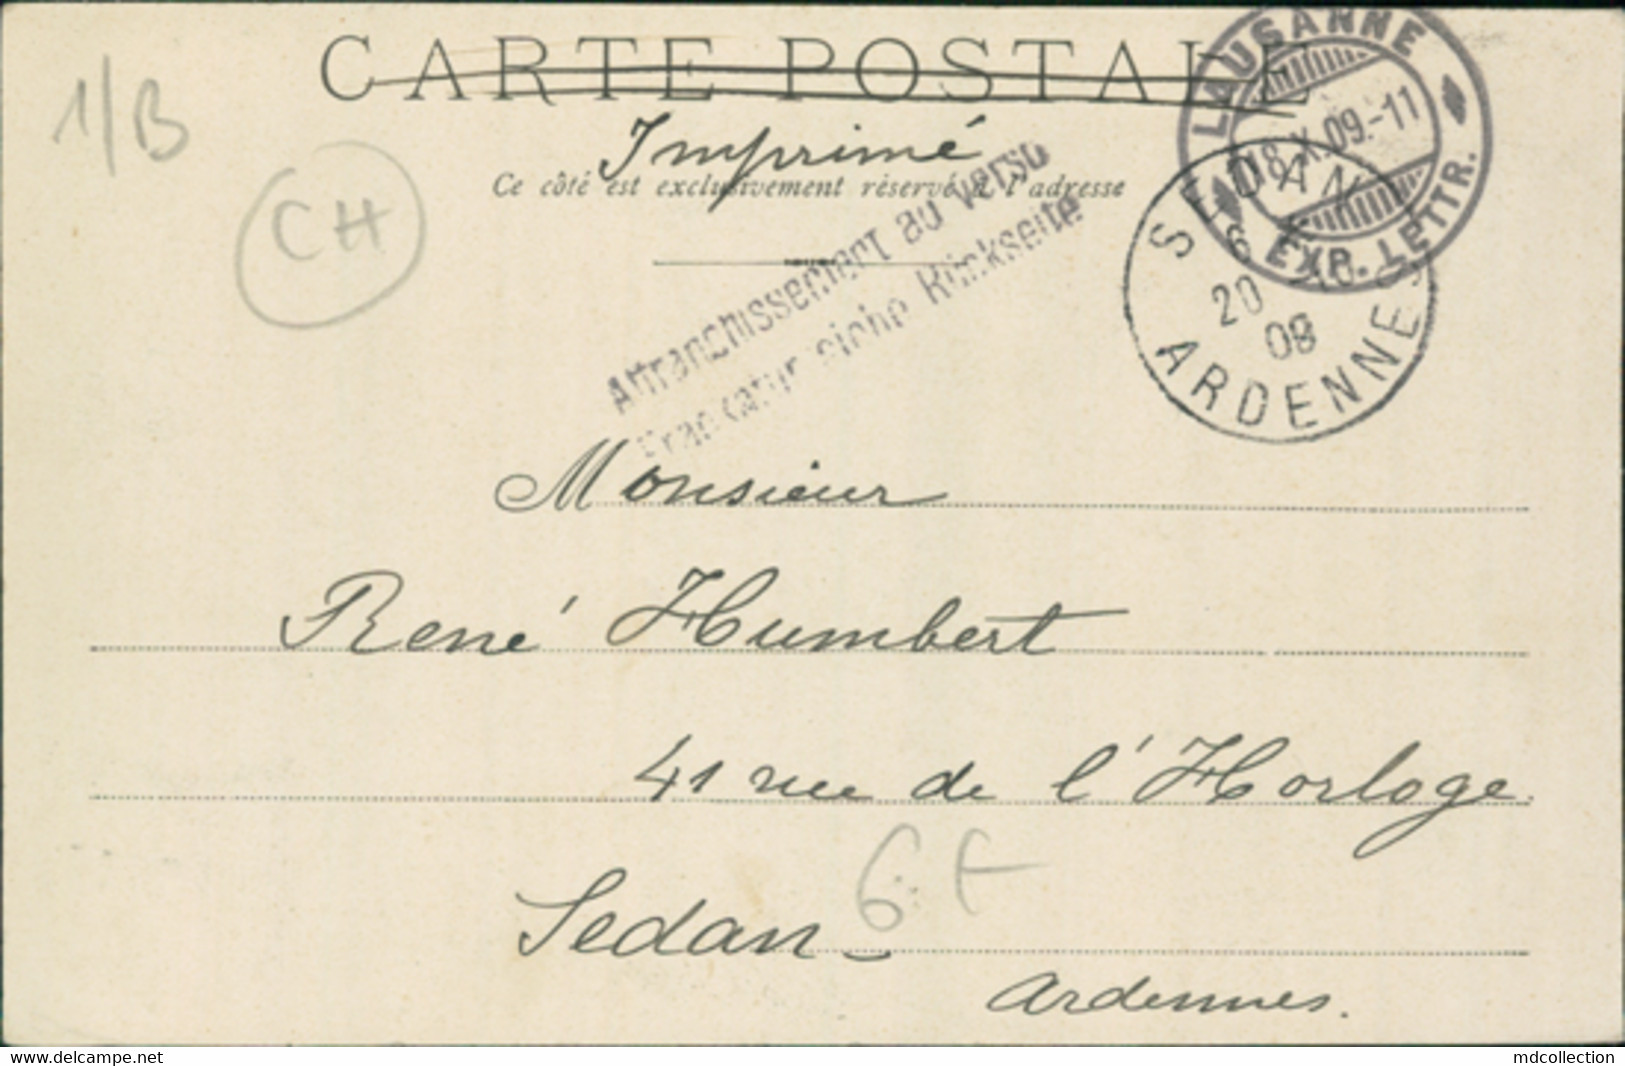 CARTE POSTALE
1/B
Imprimé
Ce côté est exclusivement réservé à l'adresse
CH
LAUSANNE
18.X.09.-11
EXP. LETTR.
SEDAN
20
09
ARDENNES
Affranchissement au verso
Frankatur siehe Rückseite
Monsieur
René Humbert
41 rue de l'Horloge
Sedan
Ardennes.
www.delcampe.net
mdcollection